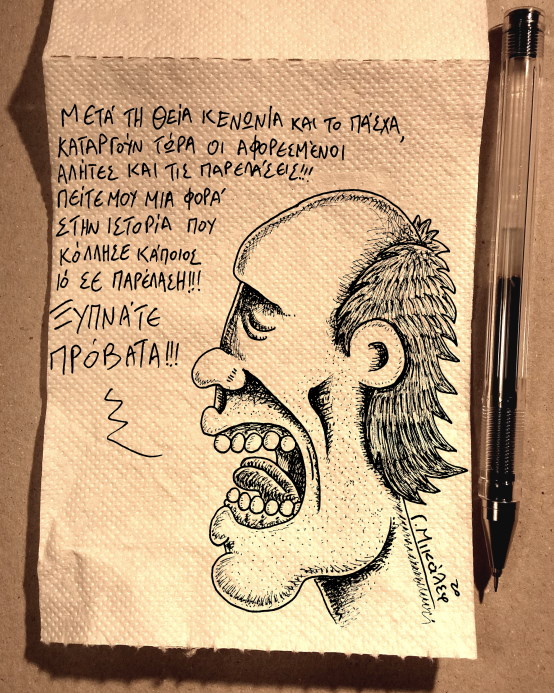 ΜΕΤΆ ΤΗ ΘΕΊΑ ΚΕΝΩΝΊΑ ΚΑΙ ΤΟ ΠΆΣΧΑ,
ΚΑΤΑΡΓΟΎΝ ΤΏΡΑ ΟΙ ΑΦΟΡΕΣΜΈΝΟΙ
ΑΛΉΤΕΣ ΚΑΙ ΤΙΣ ΠΑΡΕΛΆΣΕΙΣ!!!
ΠΕΊΤΕ ΜΟΥ ΜΙΑ ΦΟΡΆ
ΣΤΗΝ ΙΣΤΟΡΊΑ ΠΟΥ
ΚΌΛΛΗΣΕ ΚΆΠΟΙΟΣ
ΙΌ ΣΕ ΠΑΡΈΛΑΣΗ!!!
ΞΥΠΝΆΤΕ
ΠΡΌΒΑΤΑ!!!
Γ. ΜΙΚΆΛΕΦ
20